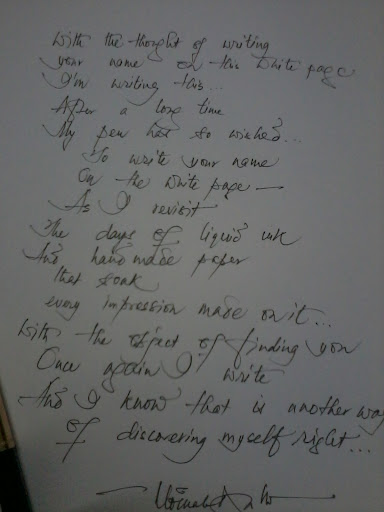 With the thought of writing
your name on this white page
I'm writing this...
After a long time
My pen has so wished...
To write your name
On the white page —
As I revisit
The days of liquid ink
And hand made paper
that soak
every impression made on it...
With the object of finding you
Once again I write
And I know that is another way
Of discovering myself right...